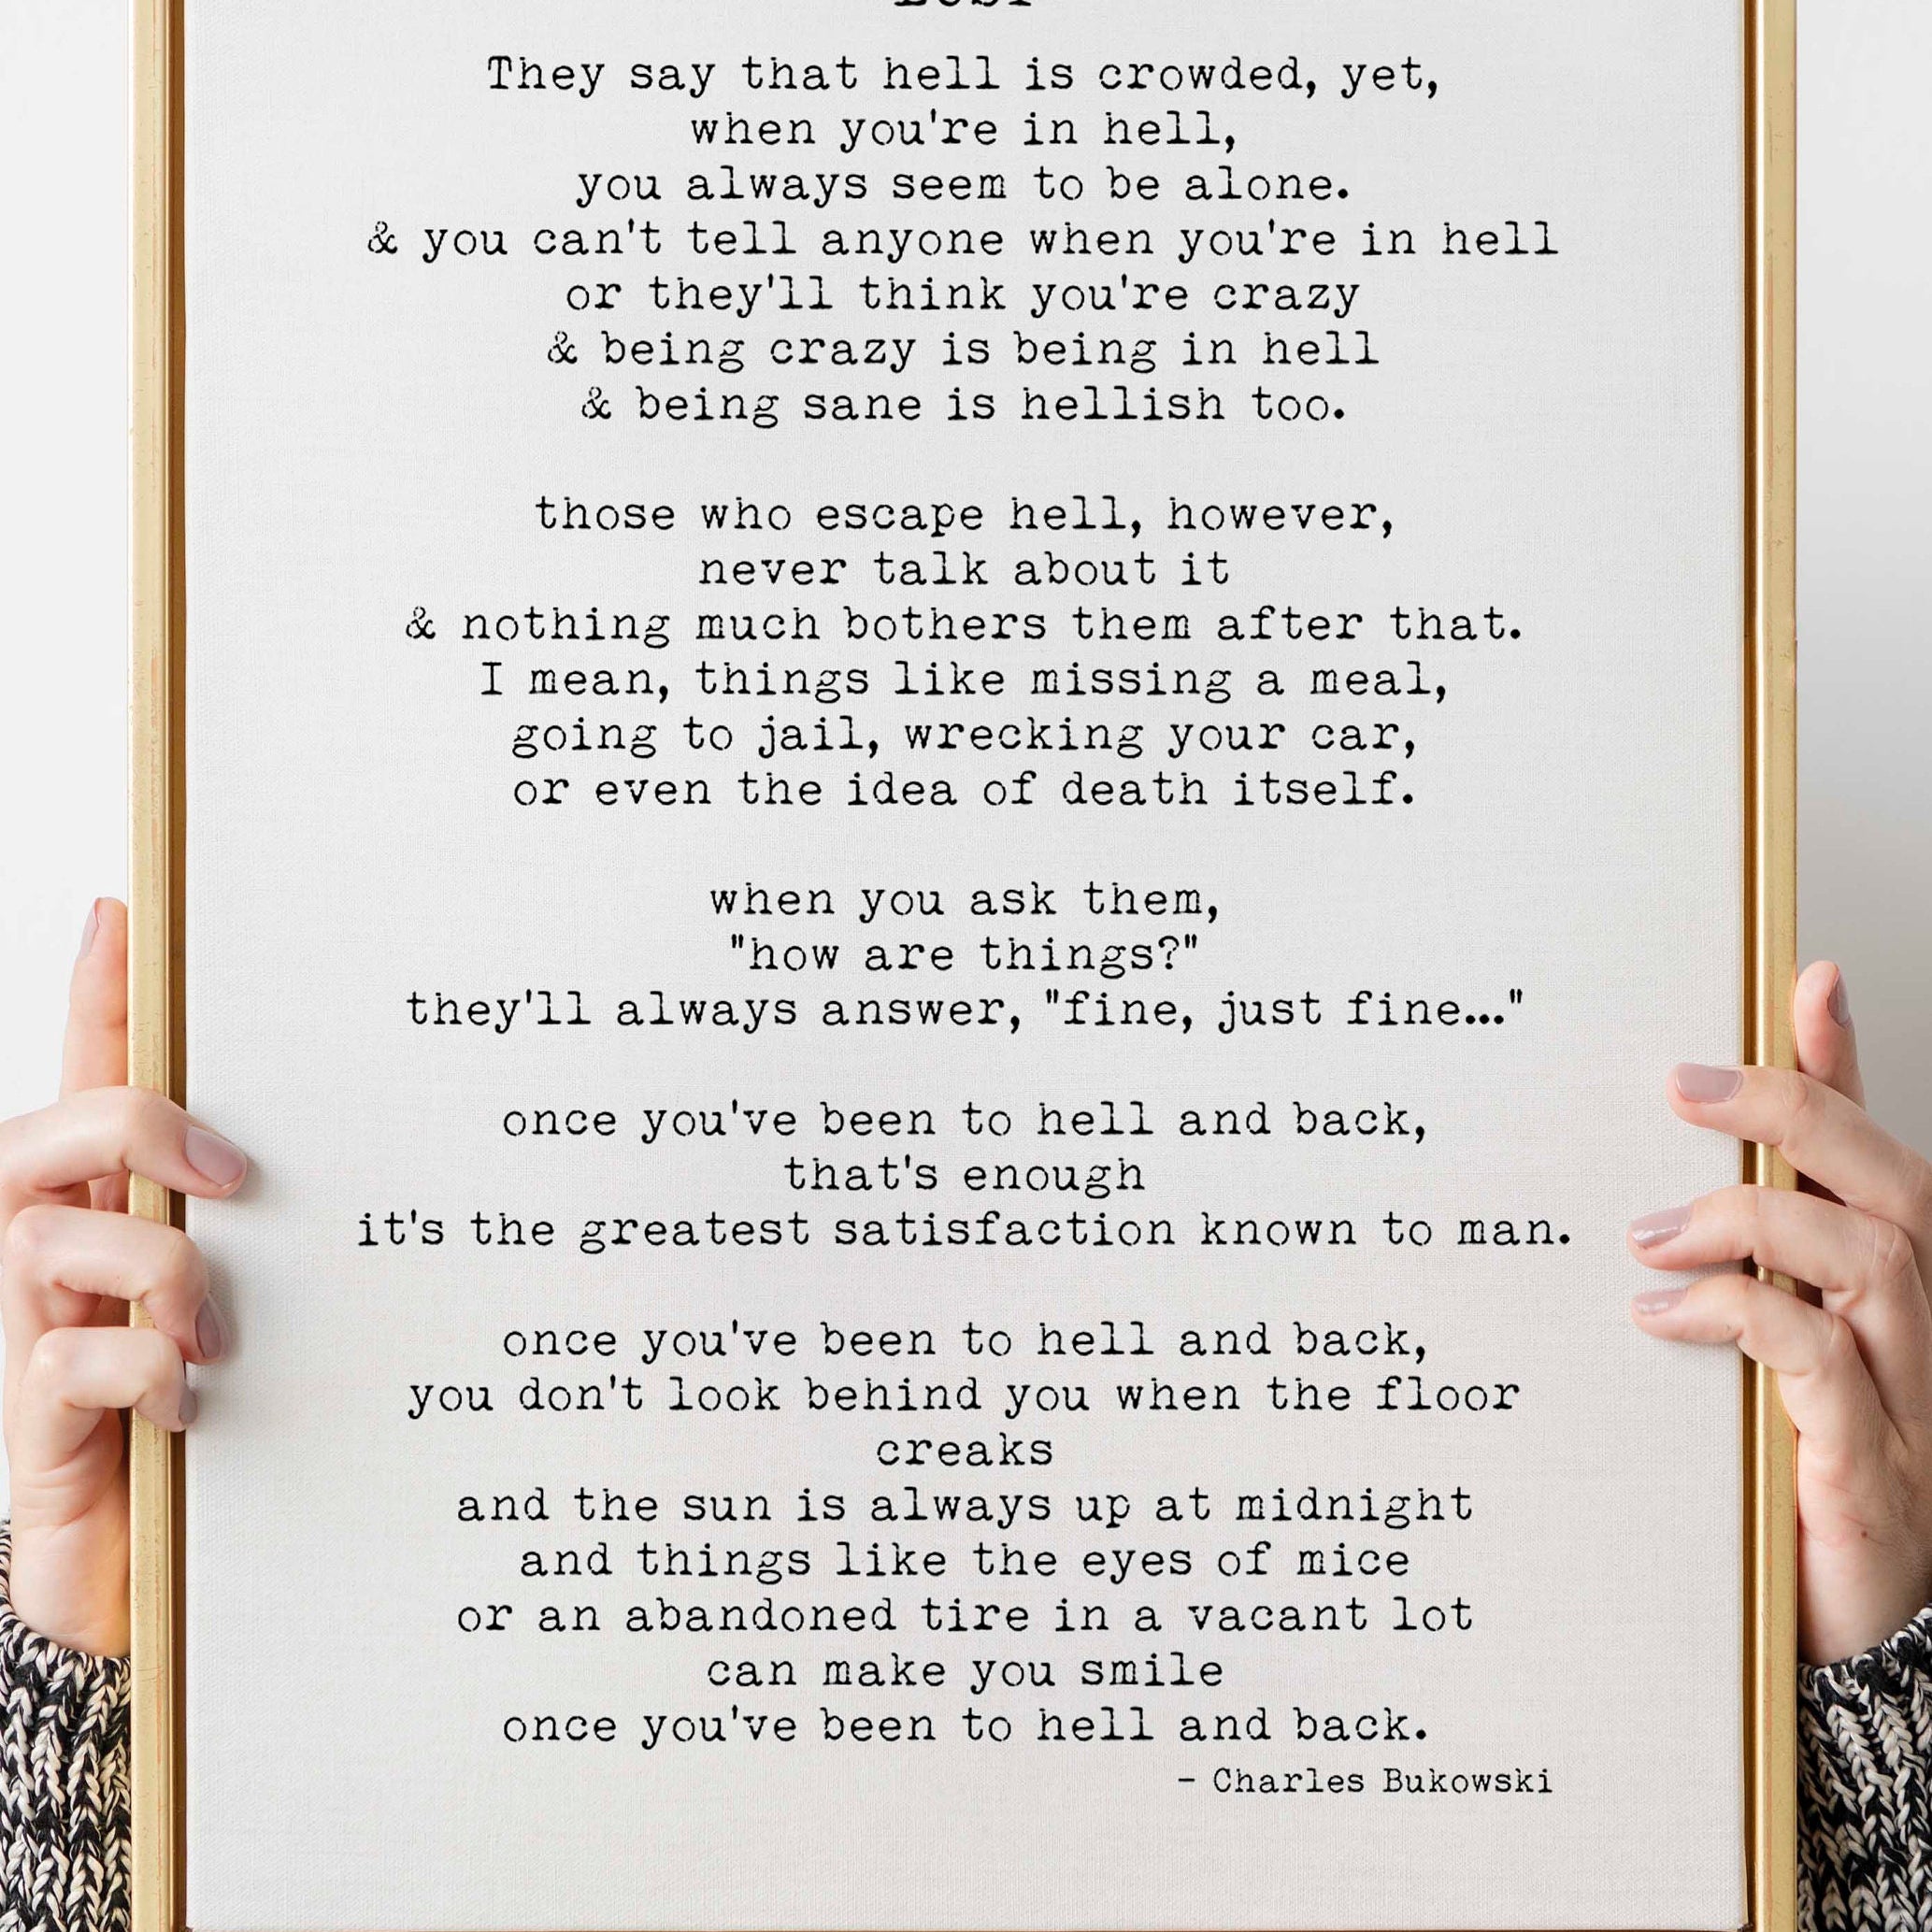 They say that hell is crowded, yet,
when you're in hell,
you always seem to be alone.
& you can't tell anyone when you're in hell
or they'll think you're crazy
& being crazy is being in hell
& being sane is hellish too.
those who escape hell, however,
never talk about it
& nothing much bothers them after that.
I mean, things like missing a meal,
going to jail, wrecking your car,
or even the idea of death itself.
when you ask them,
"how are things?"
they'll always answer, "fine, just fine..."
once you've been to hell and back,
that's enough
it's the greatest satisfaction known to man.
once you've been to hell and back,
you don't look behind you when the floor
creaks
and the sun is always up at midnight
and things like the eyes of mice
or an abandoned tire in a vacant lot
can make you smile
once you've been to hell and back.
- Charles Bukowski